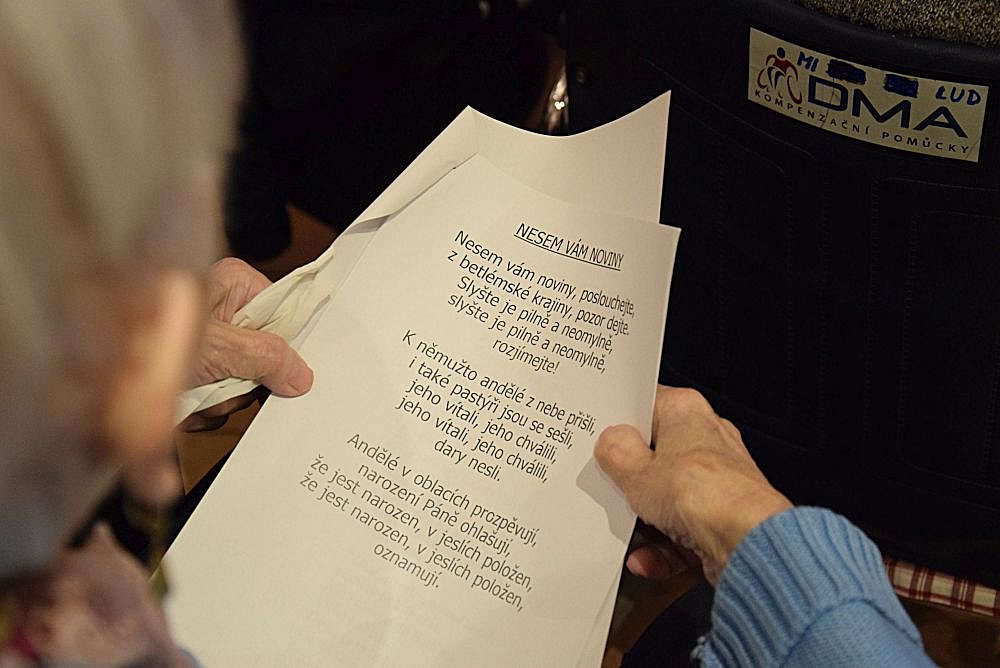 MI LUD
DMA
KOMPENZAČNÍ POMŮCKY
NESEM VÁM NOVINY
Nesem vám noviny, poslouchejte,
z betlémské krajiny, pozor dejte.
Slyšte je pilně a neomylně,
slyšte je pilně a neomylně,
rozjímejte!
K němužto andělé z nebe přišli,
i také pastýři jsou se sešli,
jeho vítali, jeho chválili,
jeho vítali, jeho chválili,
dary nesli.
Andělé v oblacích prozpěvují,
narození Páně ohlašují,
že jest narozen, v jeslích položen,
že jest narozen, v jeslích položen,
oznamují.